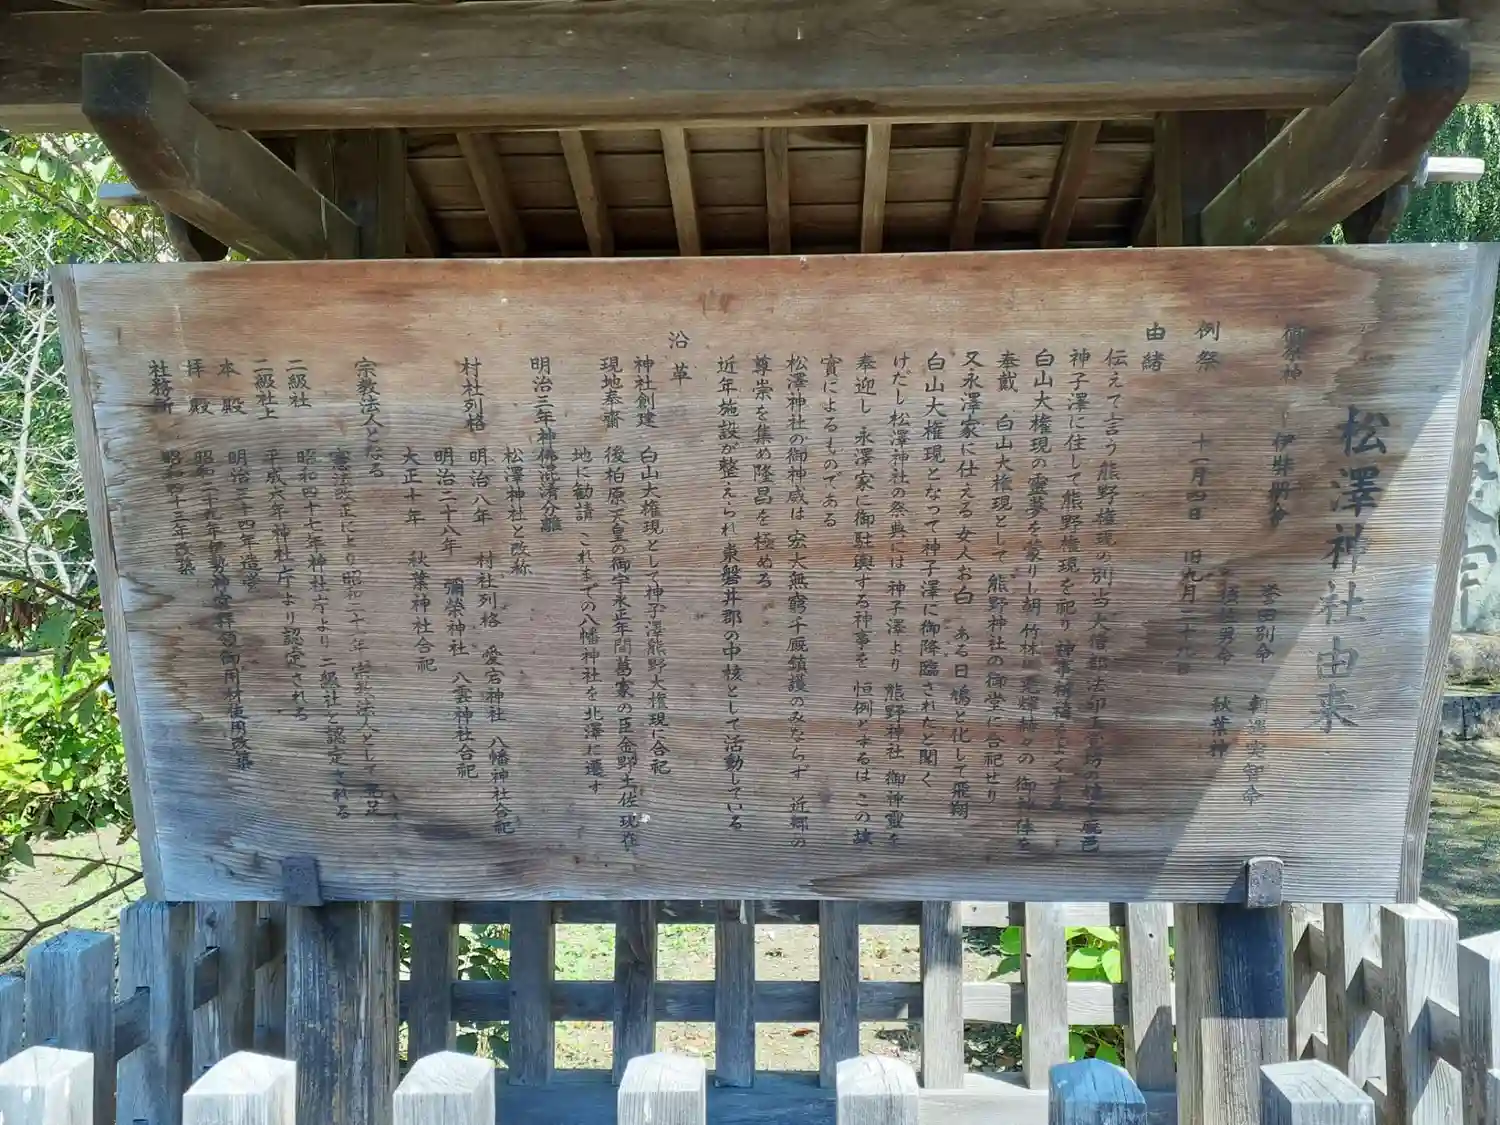 松澤神社由来
御祭神 伊弉冊命 誉田別命 軻遇突智命
倉稲男命 秋葉神
例祭 十一月四日 旧九月二十九日
由緒
伝えて言う 熊野権現の別当大僧都法印 鹿邑
神子澤に住して熊野権現を祀り 神事祈祷をよくする
白山大権現の靈夢を蒙りし朝 竹林に光輝赫々の 御神体を
奉戴 白山大権現として 熊野神社の御堂に合祀せり
又永澤家に仕える 女人お白 ある日 鳩と化して飛翔
白山大権現となって神子澤に御降臨されたと聞く
けだし松澤神社の祭典には 神子澤より 熊野神社 御神靈を
奉迎し 永澤家に御駐輿する神事を 恒例とするは この故
實によるものである
松澤神社の御神威は 宏大無窮千厩鎮護のみならず 近郷の
尊崇を集め隆昌を極める
近年施設が整えられ東磐井郡の中核として活動している
沿革
神社創建 白山大権現として神子澤熊野大権現に合祀
現地奉齋 後柏原天皇の御宇永正年間葛家の臣金野土佐現在
地に勧請 これまでの八幡神社を北澤に遷す
明治三年神佛混淆分離
松澤神社と改称
村社列格 明治八年 村社列格 愛宕神社 八幡神社合祀
明治二十八年 彌榮神社 八雲神社合祀
大正十年 秋葉神社合祀
宗教法人となる 憲法改正により昭和二十一年 宗教法人として発足
二級社 昭和四十七年神社庁より 二級社と認定される
二級社上 平成六年神社庁より認定される
本殿 明治三十四年造営
拝殿 昭和二十八年伊勢神宮拝領御用材使用改築
社務所 昭和四十三年改築